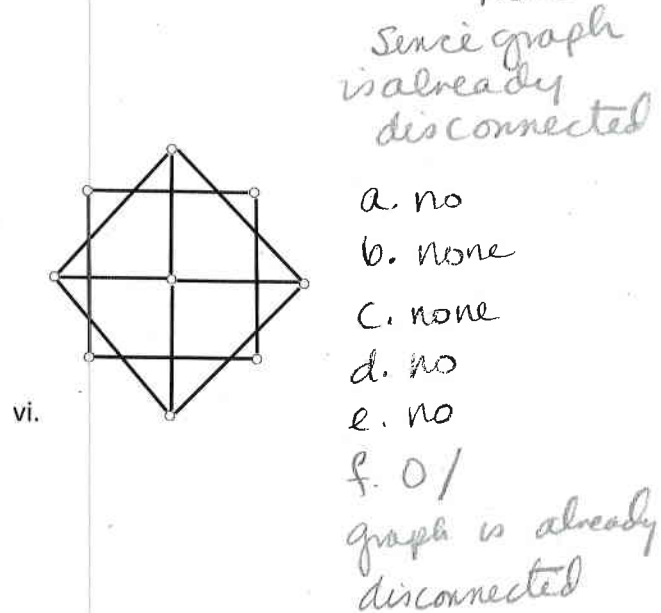 Sence graph
is already
disconnected
a. no
b. none
c. none
d. no
e. no
vi.
f. 0/
graph is already
disconnected